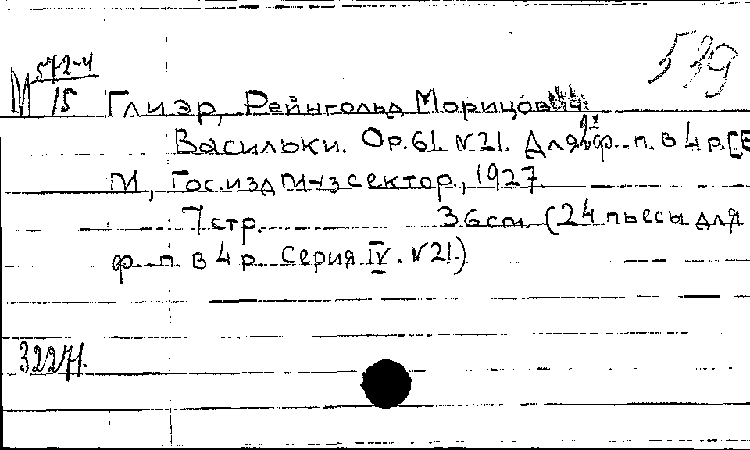 М 572-4/15
539
Глиэр, Рейнгольд Морицович
Васильки. Op. 61. №21. Для 2х ф.-п. в 4 р. [Б
М, Гос. изд муз сектор, 1927.
7 стр. 36 см. (24 пьесы для
ф.-п. в 4 р. Серия IV. №21.)
32271.